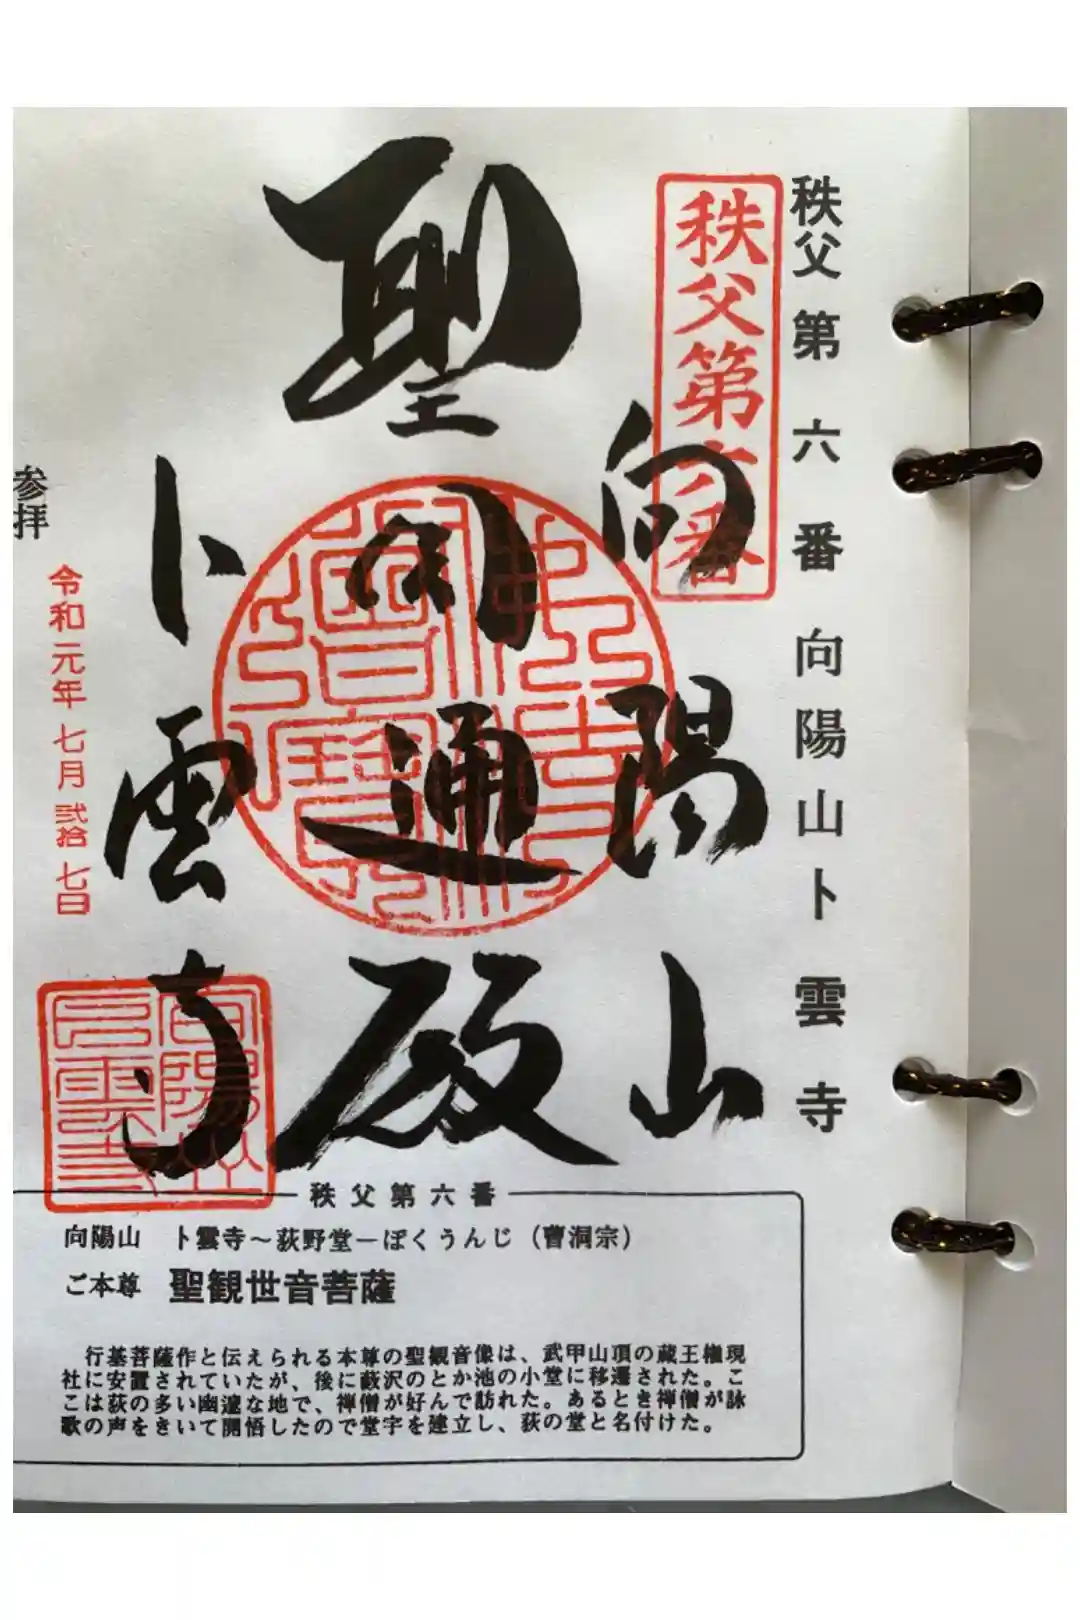 秩父第六番 向陽山卜雲寺
秩父第六番
向陽山
聖
円通殿
卜雲寺
参拝
令和元年 七月 弐拾七日
秩父第六番
向陽山 卜雲寺〜荻野堂ーぼくうんじ（曹洞宗）
ご本尊 聖観世音菩薩
行基菩薩作と伝えられる本尊の聖観音像は、武甲山頂の蔵王権現
社に安置されていたが、後に藪沢のとか池の小堂に移遷された。こ
こは荻の多い幽邃な地で、禅僧が好んで訪れた。あるとき禅僧が詠
歌の声をきいて開悟したので堂宇を建立し、荻の堂と名付けた。